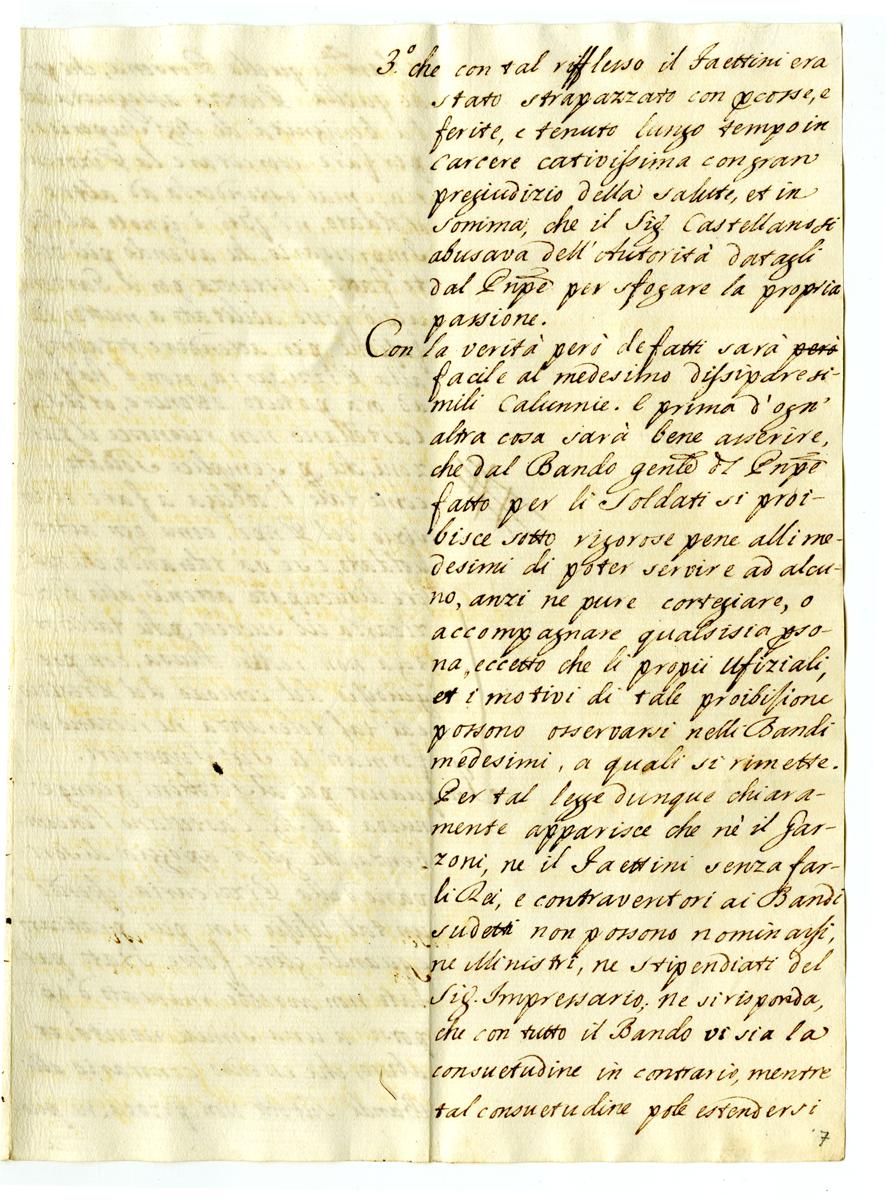 3.° che con tal rifflesso il Faettini era
stato strapazzato con pcosse, e
ferite, e tenuto lungo tempo in
carcere cativissima con gran
pregiudizio della salute, et in
somma, che il Sig. Castellano si
abusava dell'Autorità datagli
dal Pnpe per sfogare la propria
passione.
Con la verità però de fatti sarà però
facile al medesimo dissipare si-
mili Calunnie. E prima d'ogn'
altra cosa sarà bene asserire,
che dal Bando genle del Pnpe
fatto per li Soldati si proi-
bisce sotto rigorose pene alli me-
desimi di poter servire ad alcu-
no, anzi ne pure cortegiare, o
accompagnare qualsisia pso-
na, eccetto che li propii Ufiziali,
et i motivi di tale proibisione
possono osservarsi nelli Bandi
medesimi, a quali si rimette.
Per tal legge dunque chiara-
mente apparisce che nè il Gar-
zoni, ne il Faettini senza far-
li Rei, e contraventori ai Bandi
sudetti non possono nominarsi,
ne Ministri, ne stipendiati del
Sig. Impressario; ne si risponda,
che con tutto il Bando vi sia la
consuetudine in contrario, mentre
tal consuetudine pole estendersi
7